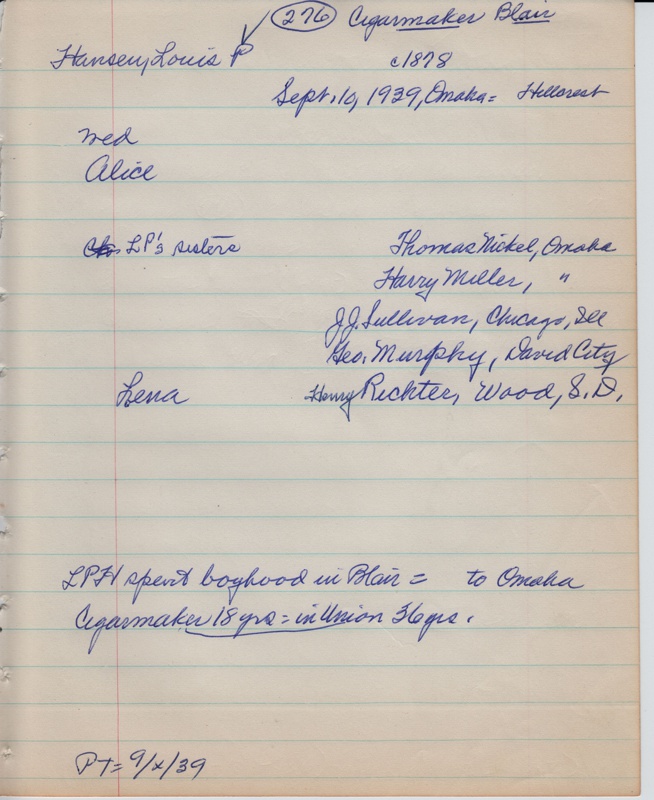 276 Cigarmaker Blair
Hansen, Louis P c1878
Sept. 10, 1939, Omaha = Hillcrest
wed
Alice
LP's sisters Thomas Nickel, Omaha
Harry Miller, "
J.J. Sullivan, Chicago, Ill
Geo. Murphy, David City
Lena Henry Richter, Wood, S.D.
LPH spent boyhood in Blair = to Omaha
Cigarmaker 18 yrs = in Union 36 yrs.
PT = 9/x/39